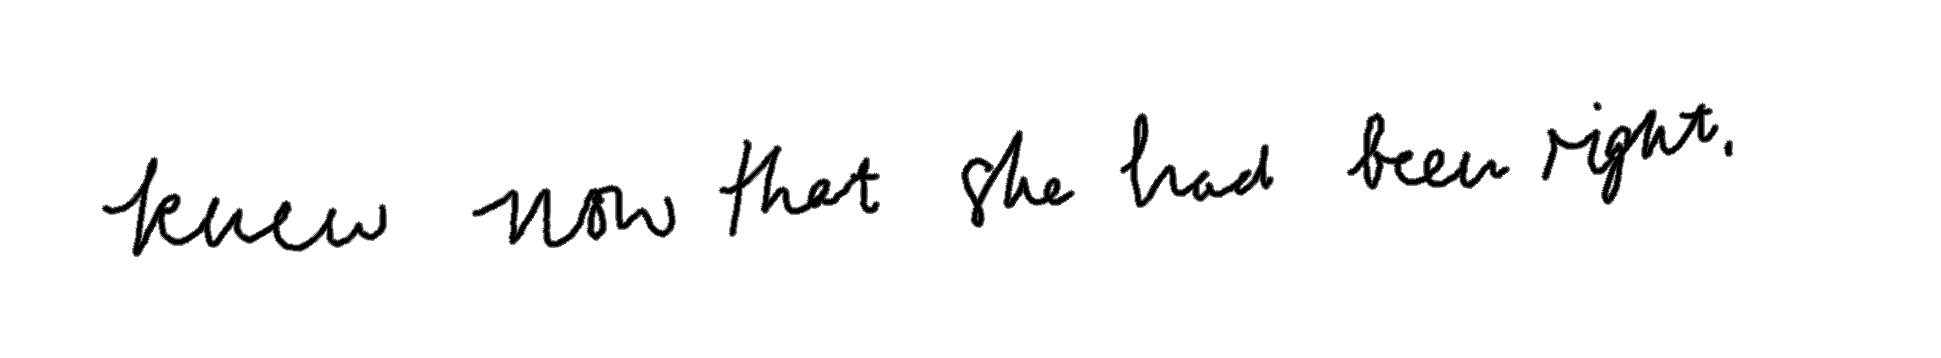 knew now that she had been right.